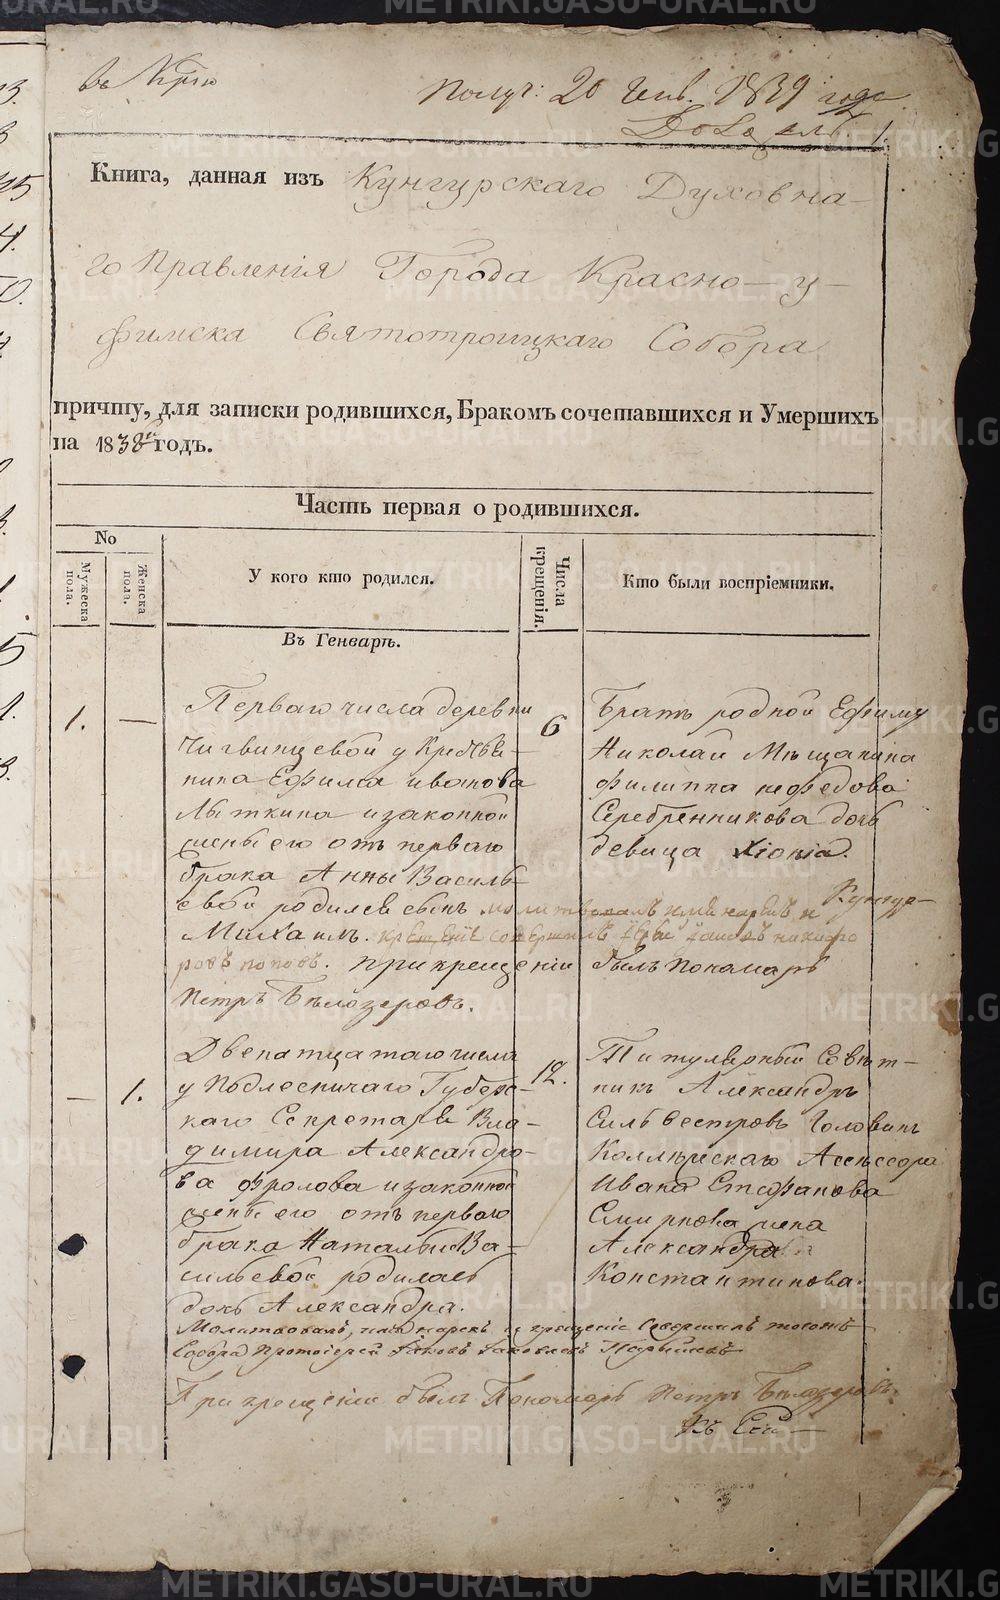 Получ: 20 Генв. 1839 года
1.
Книга, данная изъ Кунгурскаго Духовна-
го Правленія Города Красно-у-
фимска Святотроицкаго Собора
причту, для записки родившихся, Бракомъ сочетавшихся и Умершихъ
на 1838й годъ.
Часть первая о родившихся.
No
Мужеска пола.
Женска пола.
У кого кто родился.
Числа крещенія.
Кто были воспріемники.
Въ Генварѣ.
1.
—
Перваго числа деревни
у Крестья-
нина Ефима иванова
Лыткина и законной
жены его отъ перваго
брака Анны Василь-
евой родился сынъ молитвовалъ имя нарекъ и
Михаилъ. крещеніе совершилъ
ровъ поповъ. При крещеніи былъ Пономарь
Петръ Бѣлозеровъ.
6
Братъ родной Ефиму
Николай Мѣщанина
филиппа нефедова
Серебренникова дочь
девица Хіонія.
—
1.
Двенатцатаго числа
у Подлесничаго Губерс-
каго Секретаря Вла-
димира Александро-
ва фролова и законной
жены его отъ перваго
брака Натальи Ва-
сильевой родилась
дочь Александра.
12.
Титулярный Совѣт-
никъ Александръ
Сильвестровъ Головинъ
Коллежскаго Асессора
Ивана Стефанова
Смирнова жена
Александра
Константинова.
Молитвовалъ, имя нарекъ и крещеніе Совершилъ тогожъ
Собора Протоіерей Іаковъ
При крещеніи былъ Пономарь Петръ Бѣлозеровъ.